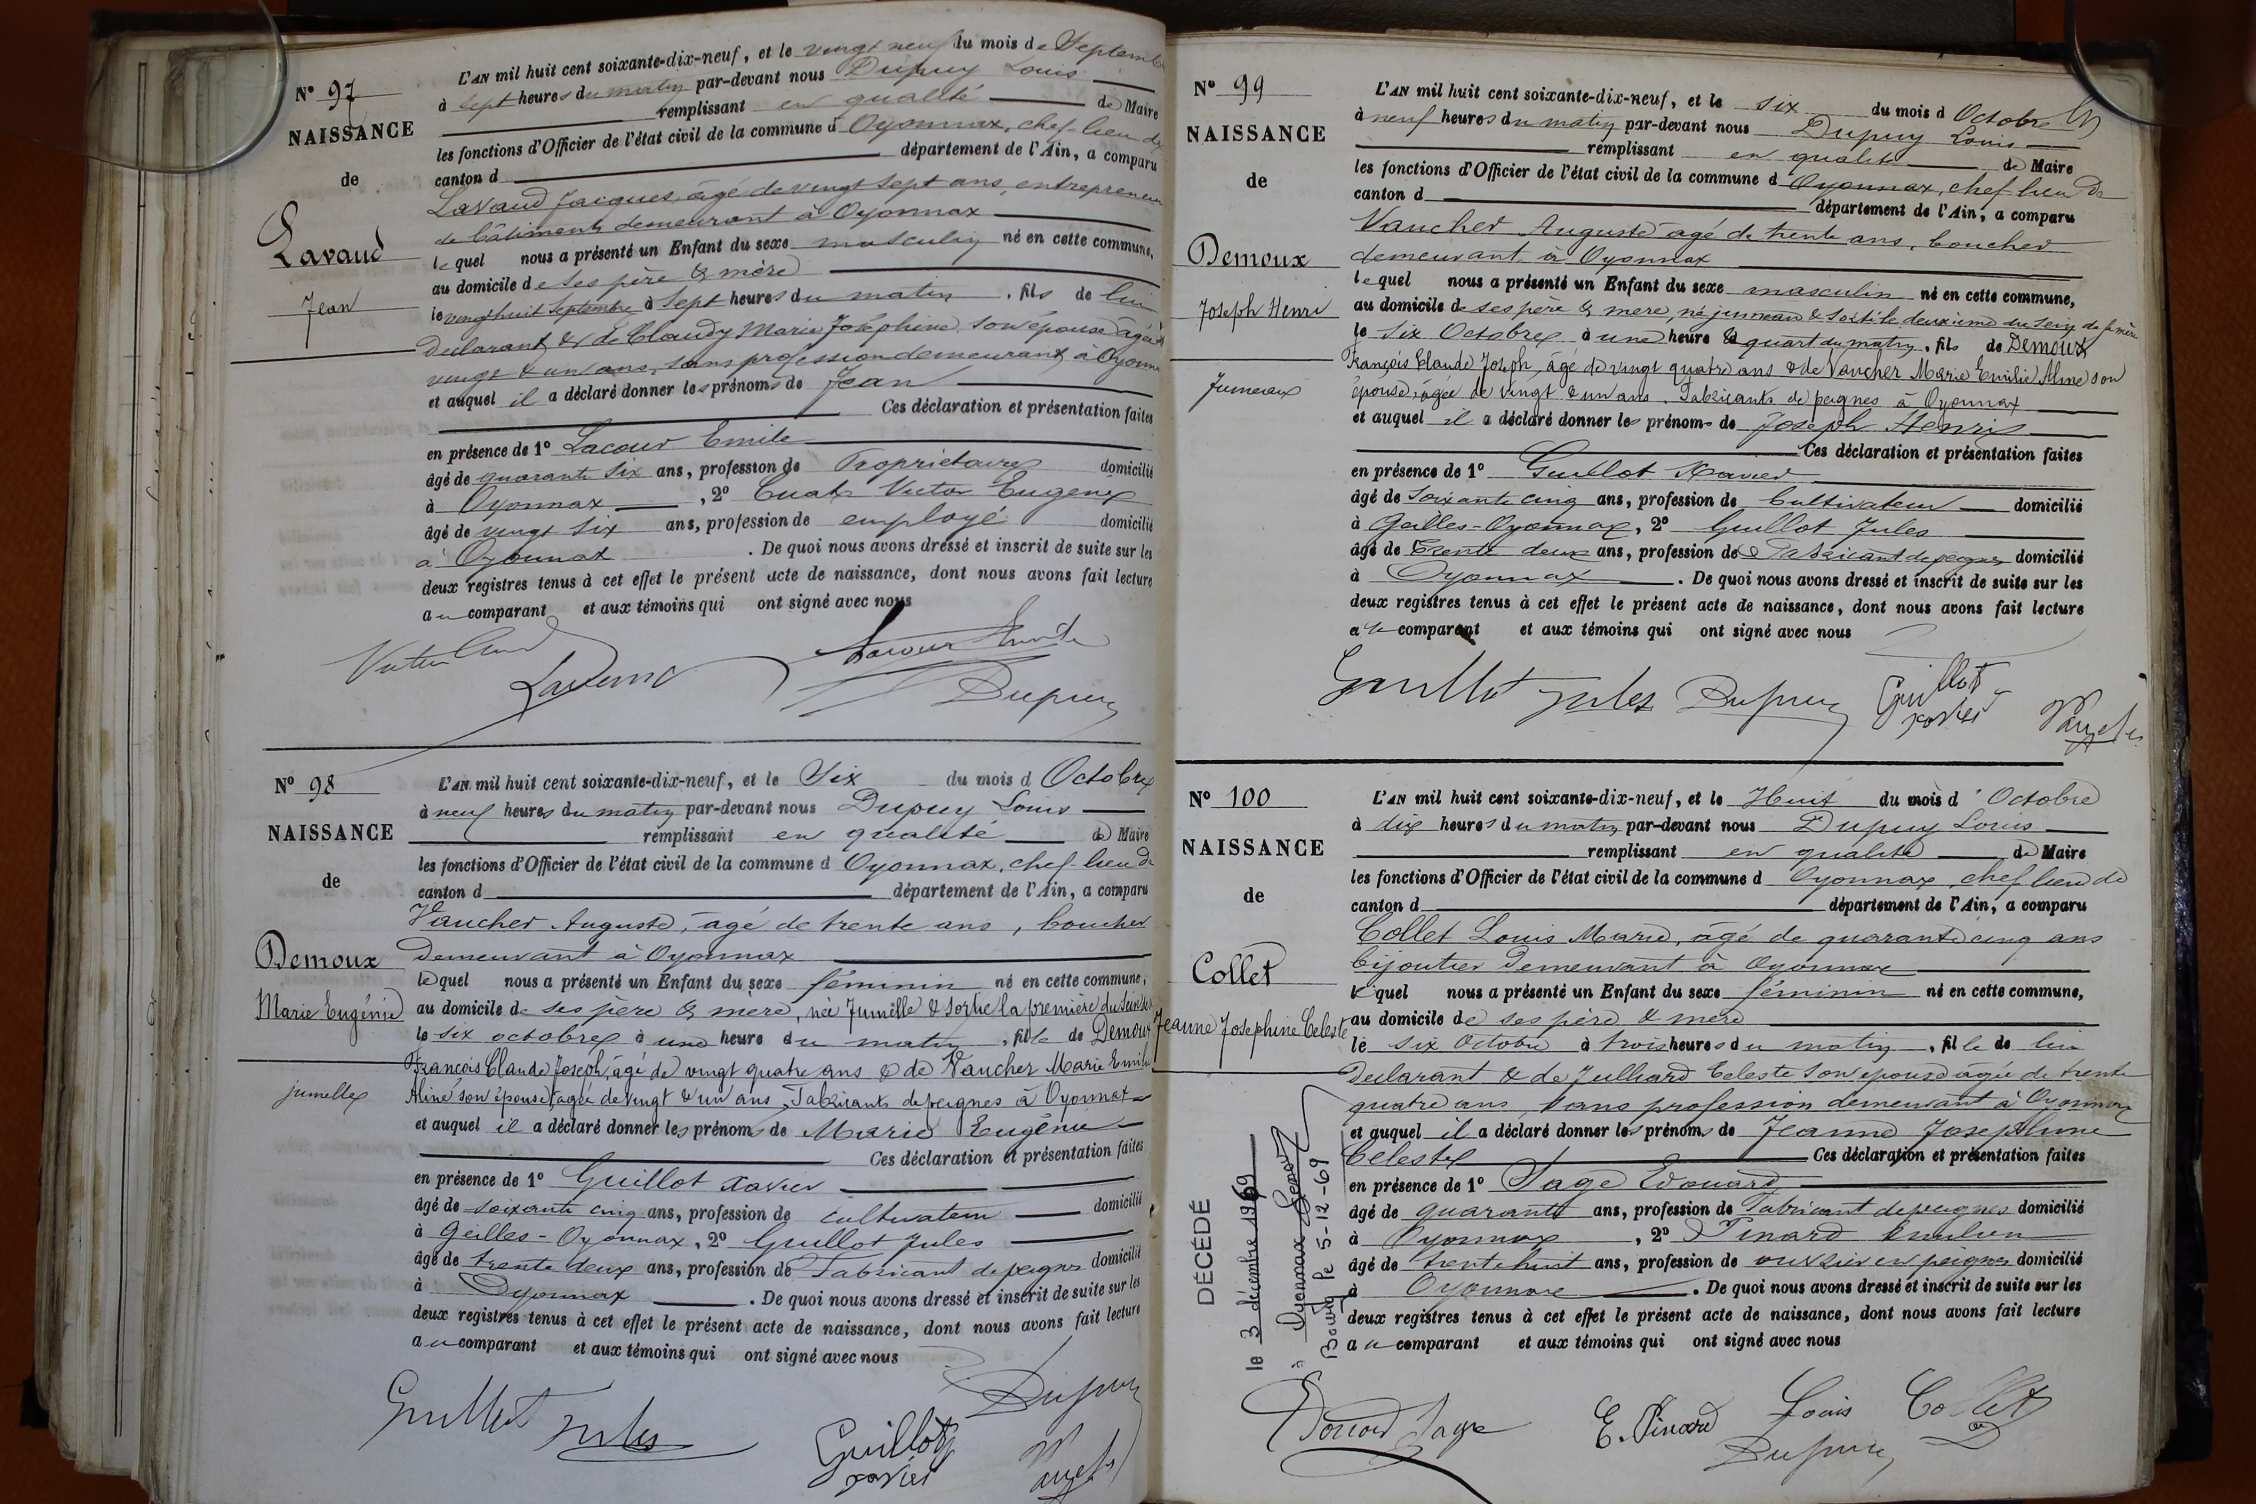 N° 97
NAISSANCE
de
Lavaud
Jean
L'AN mil huit cent soixante-dix-neuf, et le vingt neuf du mois de Septembre
à sept heures du matin par-devant nous Dupuy Louis
remplissant en qualité de Maire
les fonctions d'Officier de l'état civil de la commune d Oyonnax, chef-lieu de
canton d département de l'Ain, a comparu
Lavaud Jacques, âgé de vingt sept ans, entrepreneur
de bâtiments demeurant à Oyonnax
lequel nous a présenté un Enfant du sexe masculin né en cette commune,
au domicile de ses père & mère
le vingt huit Septembre à sept heures du matin, fils de lui
Déclarant & de Claudy Marie Joséphine son épouse âgée de
vingt & un ans, sans profession demeurant à Oyonnax
et auquel il a déclaré donner les prénoms de Jean
Ces déclaration et présentation faites
en présence de 1° Lacour Emile
âgé de quarante six ans, profession de Propriétaire domicilié
à Oyonnax, 2° Victor Eugène
âgé de vingt six ans, profession de employé domicilié
à Oyonnax. De quoi nous avons dressé et inscrit de suite sur les
deux registres tenus à cet effet le présent acte de naissance, dont nous avons fait lecture
au comparant et aux témoins qui ont signé avec nous
Lacour Emile
Dupuy
N° 98
NAISSANCE
de
Demoux
Marie Eugénie
jumelles
L'AN mil huit cent soixante-dix-neuf, et le Six du mois d Octobre
à neuf heures du matin par-devant nous Dupuy Louis
remplissant en qualité de Maire
les fonctions d'Officier de l'état civil de la commune d Oyonnax, chef-lieu de
canton d département de l'Ain, a comparu
Vaucher Auguste, âgé de trente ans, boucher
Demeurant à Oyonnax
lequel nous a présenté un Enfant du sexe féminin né en cette commune,
au domicile de ses père & mère, née Jumelle & sortie la première du sein de sa mère
le six octobre à une heure du matin, fille de Demoux
François Claude Joseph, âgé de vingt quatre ans & de Vaucher Marie Emilie
Aline son épouse, âgée de vingt & un ans, Fabricants de peignes à Oyonnax
et auquel il a déclaré donner les prénoms de Marie Eugénie
Ces déclaration et présentation faites
en présence de 1° Guillot Xavier
âgé de soixante cinq ans, profession de cultivateur domicilié
à Geilles-Oyonnax, 2° Guillot Jules
âgé de trente deux ans, profession de Fabricant de peignes domicilié
à Oyonnax. De quoi nous avons dressé et inscrit de suite sur les
deux registres tenus à cet effet le présent acte de naissance, dont nous avons fait lecture
au comparant et aux témoins qui ont signé avec nous
Dupuy
Guillot Jules
Guillot
xavier
N° 99
NAISSANCE
de
Demoux
Joseph Henri
Jumeaux
L'AN mil huit cent soixante-dix-neuf, et le six du mois d Octobre
à neuf heures du matin par-devant nous Dupuy Louis
remplissant en qualité de Maire
les fonctions d'Officier de l'état civil de la commune d Oyonnax, chef lieu de
canton d département de l'Ain, a comparu
Vaucher Auguste âgé de trente ans, boucher
demeurant à Oyonnax
lequel nous a présenté un Enfant du sexe masculin né en cette commune,
au domicile de ses père & mère, né jumeau & sorti le deuxième du sein de sa mère
le six Octobre à une heure & quart du matin, fils de Demoux
François Claude Joseph, âgé de vingt quatre ans & de Vaucher Marie Emilie Aline son
épouse, âgée de vingt & un ans. Fabricants de peignes à Oyonnax
et auquel il a déclaré donner les prénoms de Joseph Henri
Ces déclaration et présentation faites
en présence de 1° Guillot Xavier
âgé de soixante cinq ans, profession de Cultivateur domicilié
à Geilles-Oyonnax, 2° Guillot Jules
âgé de trente deux ans, profession de Fabricant de peignes domicilié
à Oyonnax. De quoi nous avons dressé et inscrit de suite sur les
deux registres tenus à cet effet le présent acte de naissance, dont nous avons fait lecture
au comparant et aux témoins qui ont signé avec nous
Guillot Jules Dupuy
Guillot
xavier
N° 100
NAISSANCE
de
Collet
Jeanne Josephine Celeste
DÉCÉDÉ
le 3 décembre 1969
à Oyonnax
Bourg le 5-12-69
L'AN mil huit cent soixante-dix-neuf, et le Huit du mois d'Octobre
à dix heures du matin par-devant nous Dupuy Louis
remplissant en qualité de Maire
les fonctions d'Officier de l'état civil de la commune d Oyonnax, chef lieu de
canton d département de l'Ain, a comparu
Collet Louis Marie, âgé de quarante cinq ans
bijoutier Demeurant à Oyonnax
lequel nous a présenté un Enfant du sexe féminin né en cette commune,
au domicile de ses père & mère
le six Octobre à trois heures du matin, fille de lui
Déclarant & de Julliard Celeste son épouse âgée de trente
quatre ans, sans profession demeurant à Oyonnax
et auquel il a déclaré donner les prénoms de Jeanne Josephine
Celeste Ces déclaration et présentation faites
en présence de 1° Sage Edouard
âgé de quarante ans, profession de Fabricant de peignes domicilié
à Oyonnax, 2° Pinard
âgé de trente huit ans, profession de ouvrier en peignes domicilié
à Oyonnax. De quoi nous avons dressé et inscrit de suite sur les
deux registres tenus à cet effet le présent acte de naissance, dont nous avons fait lecture
au comparant et aux témoins qui ont signé avec nous
Edouard Sage E. Pinard Louis Collet
Dupuy